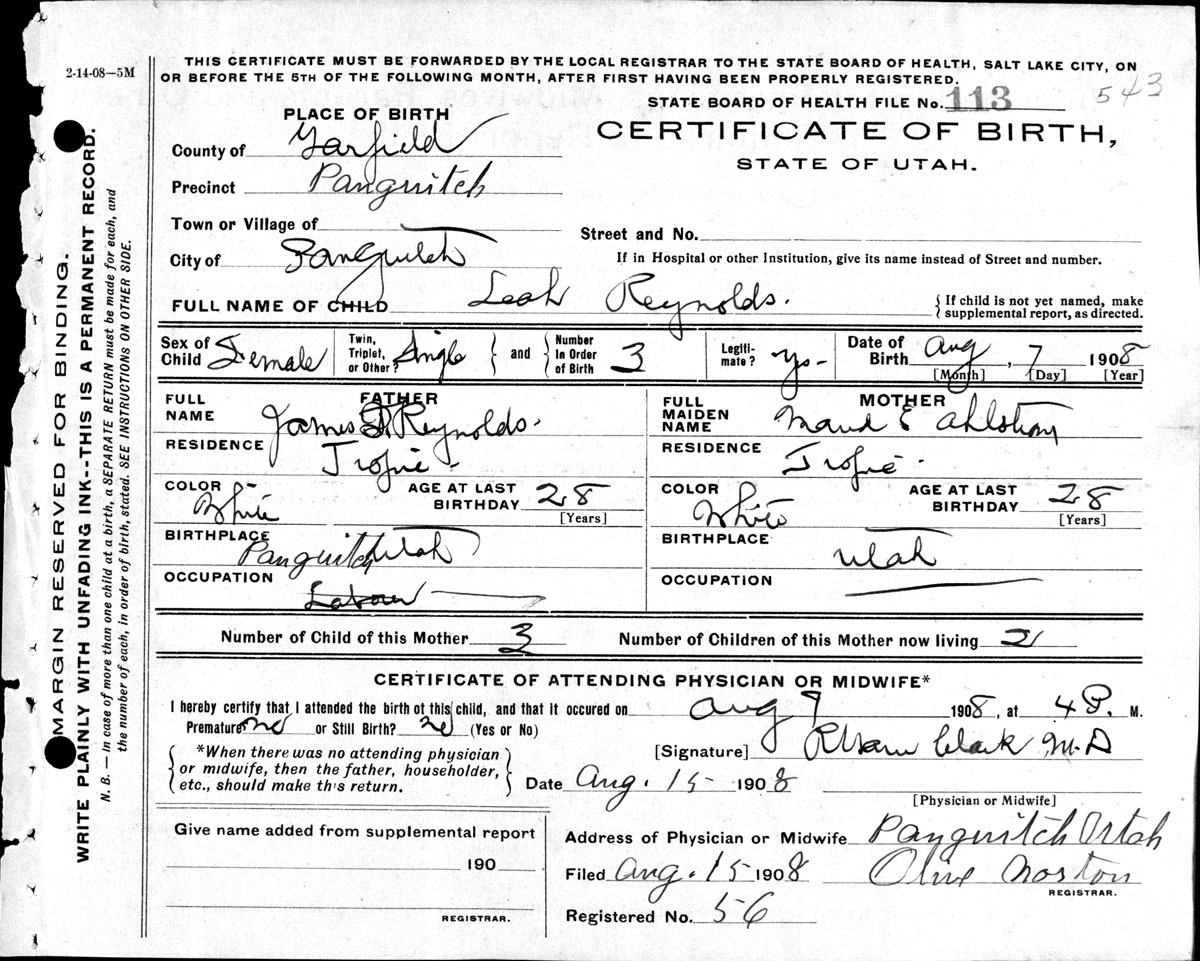 2-14-08—5M
THIS CERTIFICATE MUST BE FORWARDED BY THE LOCAL REGISTRAR TO THE STATE BOARD OF HEALTH, SALT LAKE CITY, ON
OR BEFORE THE 5TH OF THE FOLLOWING MONTH, AFTER FIRST HAVING BEEN PROPERLY REGISTERED.
STATE BOARD OF HEALTH FILE No. 113 543
PLACE OF BIRTH
CERTIFICATE OF BIRTH,
STATE OF UTAH.
County of Garfield
Precinct Panguitch
Town or Village of
Street and No.
City of Panguitch
If in Hospital or other Institution, give its name instead of Street and number.
FULL NAME OF CHILD Leah Reynolds.
{ If child is not yet named, make
supplemental report, as directed.
Sex of Child Female
Twin, Triplet, or Other? Single } and { Number In Order of Birth 3
Legiti- mate? Yes
Date of Birth Aug, 7 1908
[Month] [Day] [Year]
FATHER
FULL NAME James D. Reynolds.
RESIDENCE Tropic.
COLOR White
AGE AT LAST BIRTHDAY 28
[Years]
BIRTHPLACE Panguitch Utah
OCCUPATION Laborer
MOTHER
FULL MAIDEN NAME Maud E Ahlstrom
RESIDENCE Tropic.
COLOR White
AGE AT LAST BIRTHDAY 28
[Years]
BIRTHPLACE Utah
OCCUPATION
Number of Child of this Mother 3 Number of Children of this Mother now living 2
CERTIFICATE OF ATTENDING PHYSICIAN OR MIDWIFE*
I hereby certify that I attended the birth of this child, and that it occured on Aug 7 1908, at 4 P. M.
Premature no or Still Birth? no (Yes or No)
{ *When there was no attending physician
or midwife, then the father, householder,
etc., should make this return. }
[Signature] Clark M.D
Date Aug. 15 1908
[Physician or Midwife]
Give name added from supplemental report
190
REGISTRAR.
Address of Physician or Midwife Panguitch Utah
Filed Aug. 15 1908 Olive Norton
REGISTRAR.
Registered No. 56
MARGIN RESERVED FOR BINDING.
WRITE PLAINLY WITH UNFADING INK--THIS IS A PERMANENT RECORD.
N. B. — In case of more than one child at a birth, a SEPARATE RETURN must be made for each, and
the number of each, in order of birth, stated. SEE INSTRUCTIONS ON OTHER SIDE.